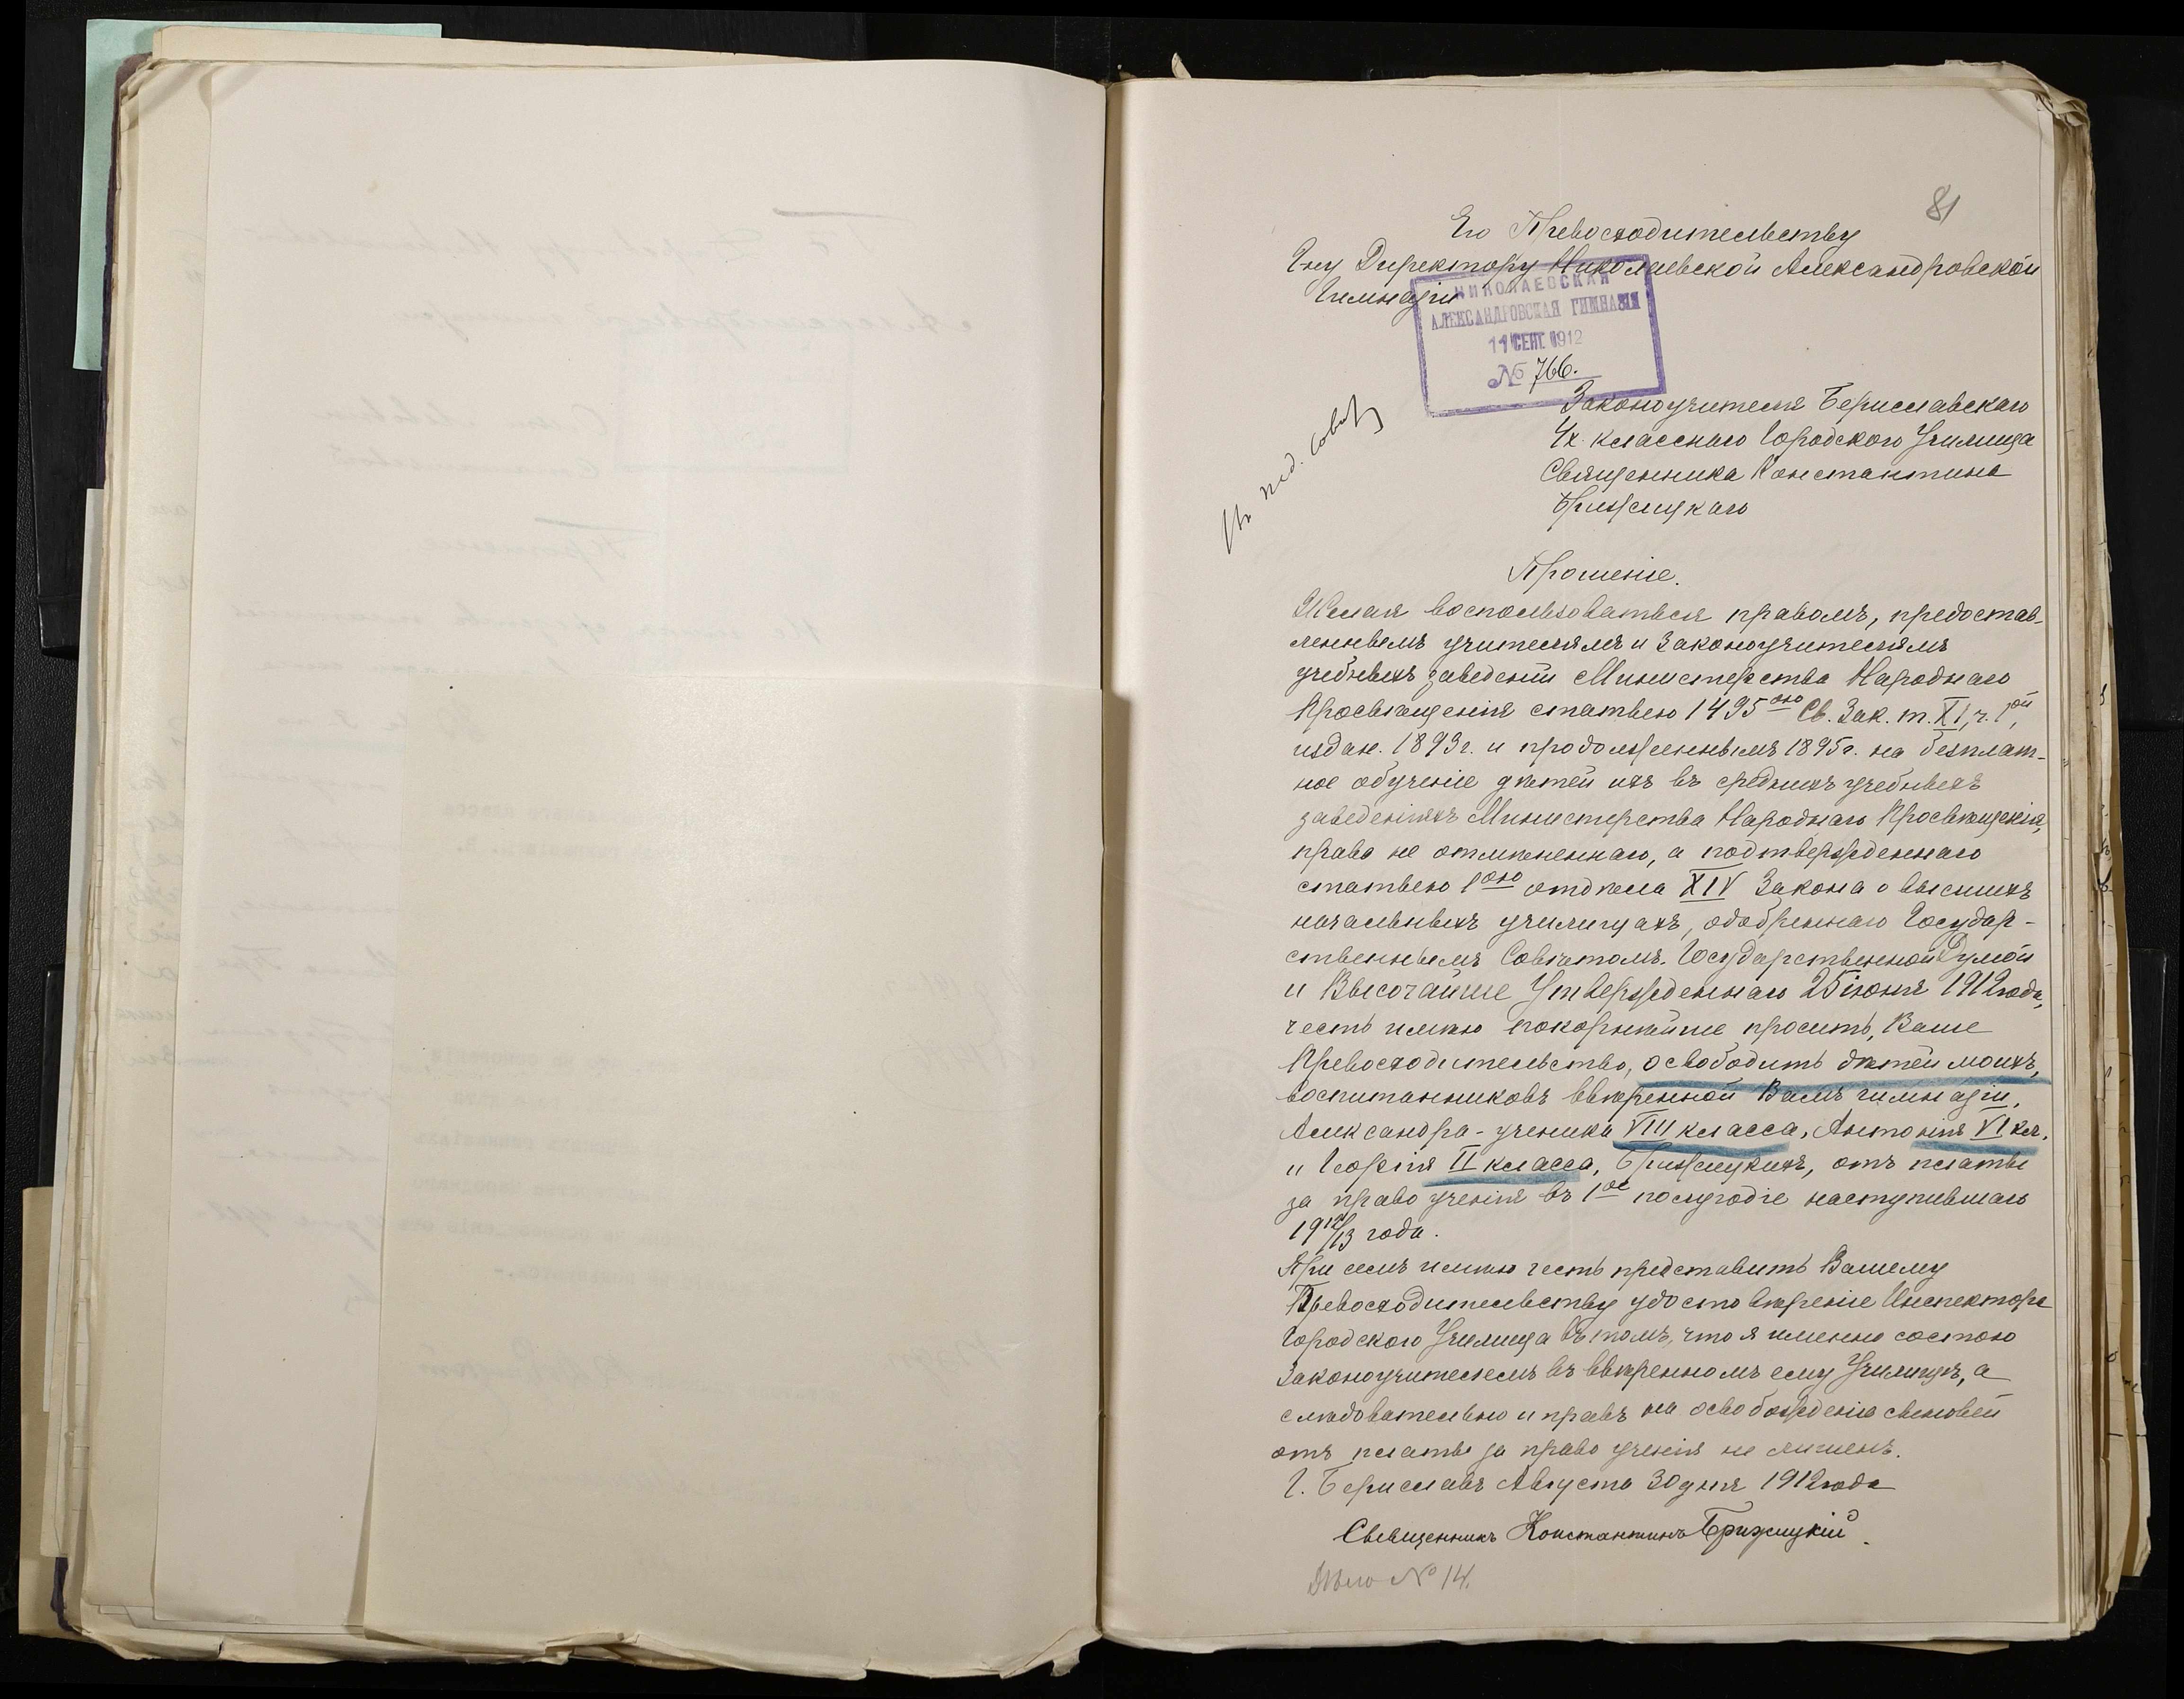 81
Его Превосходительству
Г-ну Директору Николаевской Александровской
Гимназіи
НИКОЛАЕВСКАЯ
АЛЕКСАНДРОВСКАЯ ГИМНАЗІЯ
11 СЕНТ. 1912
№ 766.
Въ пед. совѣт
Законоучителя Бериславскаго
4х. класснаго Городского Училища
Священника Константина
Брижицкаго
Прошеніе.
Желая воспользоваться правомъ, предостав-
леннымъ учителямъ и Законоучителямъ
учебныхъ заведеній Министерства Народнаго
Просвѣщенія статьею 1495ою Св. Зак. т. XI, ч. 1ой,
издан. 1893г. и продолженнымъ 1895г. на безплат-
ное обученіе дѣтей ихъ въ среднихъ учебныхъ
заведеніяхъ Министерства Народнаго Просвѣщенія,
права не отмѣненнаго, а подтвержденнаго
статьею 1ою отдѣла XIV Закона о высшихъ
начальныхъ училищахъ, одобреннаго Государ-
ственнымъ Совѣтомъ. Государственной Думой
и Высочайше Утвержденнаго 25 іюня 1912 года,
честь имѣю покорнѣйше просить, Ваше
Превосходительство, освободить дѣтей моихъ,
воспитанниковъ ввѣренной Вамъ гимназіи,
Александра - ученика VIII класса, Антонія VI кл.
и Георгія II класса, Брижицкихъ, отъ платы
за право ученія въ 1ое полугодіе наступившаго
1912/13 года.
При семъ имѣю честь представить Вашему
Превосходительству удостовѣреніе Инспектора
Городского Училища въ томъ, что я именно состою
Законоучителемъ въ ввѣренномъ ему Училищѣ, а
слѣдовательно и правъ на освобожденіе сыновей
отъ платы за право ученія не лишенъ.
Г. Бериславъ Августа 30 дня 1912 года
Священникъ Константинъ Брижицкій.
Дѣло № 14.